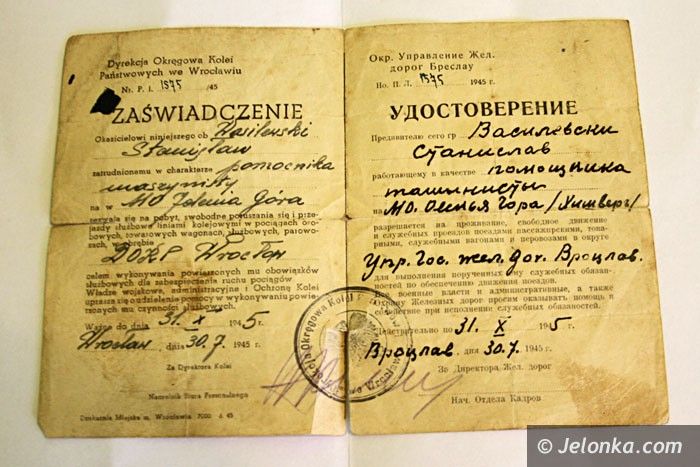 Dyrekcja Okręgowa Kolei
Państwowych we Wrocławiu
Nr. P. I. 1575 /45
ZAŚWIADCZENIE
Okaziciel niniejszego ob Wasilewski
Stanisław
zatrudnionemu w charakterze pomocnika
maszynisty
na w MO Jelenia Góra
zezwala się na pobyt, swobodne poruszanie się i prze-
jazdy służbowe liniami kolejowymi w pociągach osobo-
wych, towarowych wagonach, służbowych, parowo-
zach, w obrębie
DOKP Wrocław
celem wykonywania powierzonych mu obowiązków
służbowych dla zabezpieczenia ruchu pociągów
Władze wojskowe, administracyjne i Ochronę Kolei
uprasza się o udzielenie pomocy w wykonywaniu powie-
rzonych mu czynności służbowych.
Ważne do dnia 31. X 1945
Wrocław dnia 30.7. 1945 r.
Za Dyrektora Kolei
Naczelnik Biura Personalnego
Drukarnia Miejska m. Wrocławia 7000 6 45
Окр. Управление Жел.
дорог Бреслау
Но. П. Л. 1575 1945 г.
УДОСТОВЕРЕНИЕ
Предявителю сего гр Василевски
Станислав
работающему в качестве помощника
машинисты
на МО. Оленья Гора /Хишверг/
разрешается на проживание, свободное движение
и служебных проездов поездами пассажирскими, това-
рными, служебными вагонами и перовозами в округе
Упр. Гос. жел. дог. Вроцлав.
для выполнения порученных ему служебных обязанностей
по обеспечению движения поездов.
Все военные власти и административные, а также
Охрану Железных дорог просим оказывать помощь и
содействие при исполнении служебных обязаностей.
Действительно по 31. X 1945 г
Вроцлав. дня 30.7. 1945 г.
За Директора Жел. дорог
Нач. Отдела Кадров
© Jelonka.com